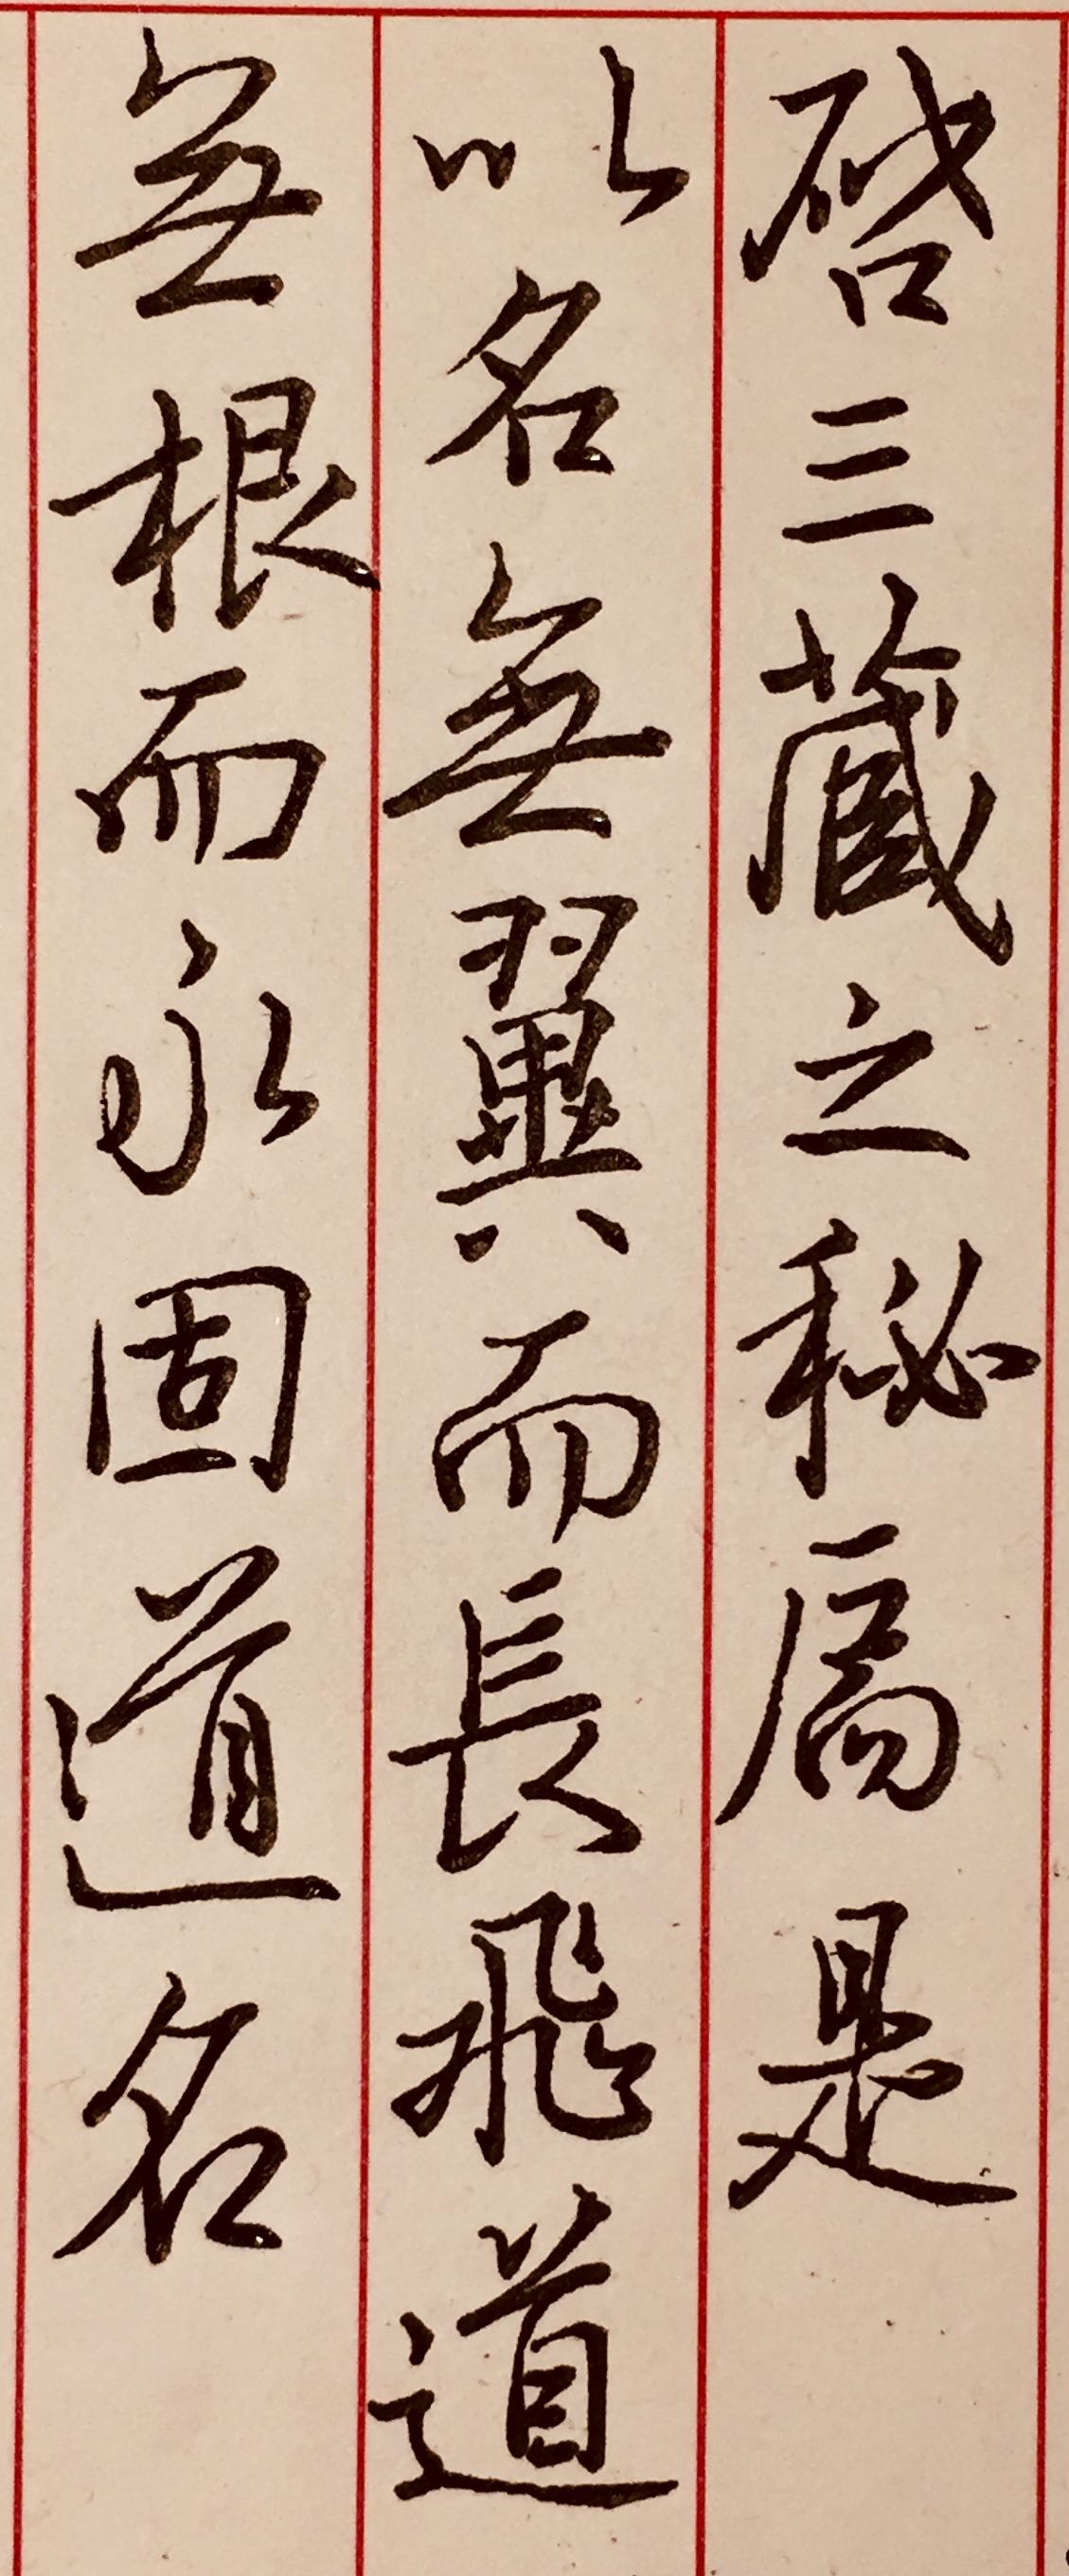 啓三藏之秘扃是
以名無翼而長飛道
無根而永固道名